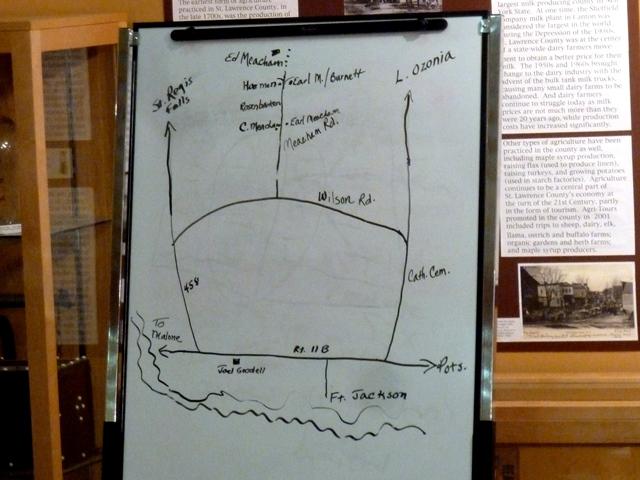 The earliest form of agriculture
practiced in St. Lawrence County, in
the late 1700s, was the production of
Ed Meacham
Harmon
Earl M./Burnett
Rosenbarker
C. Meacham
Earl Meacham
Meacham Rd.
St. Regis
Falls
L. Ozonia
Wilson Rd.
458
Cath. Cem.
To
Malone
Rt. 11B
Joel Goodell
Pots.
Ft. Jackson
largest milk producing county in New
York State. At one time, the Sheffield
Company milk plant in Canton was
considered the largest in the world.
During the Depression of the 1930s,
St. Lawrence County was at the center
of a state-wide dairy farmers move-
ment to obtain a better price for their
milk. The 1950s and 1960s brought
change to the dairy industry with the
advent of the bulk tank milk trucks,
causing many small dairy farms to be
abandoned. And dairy farmers
continue to struggle today as milk
prices are not much more than they
were 20 years ago, while production
costs have increased significantly.
Other types of agriculture have been
practiced in the county as well,
including maple syrup production,
raising flax (used to produce linen),
raising turkeys, and growing potatoes
(used in starch factories). Agriculture
continues to be a central part of
St. Lawrence County's economy at
the turn of the 21st Century, partly
in the form of tourism. Agri-Tours
promoted in the county in 2001
included trips to sheep, dairy, elk,
llama, ostrich and buffalo farms;
organic gardens and herb farms;
and maple syrup producers.